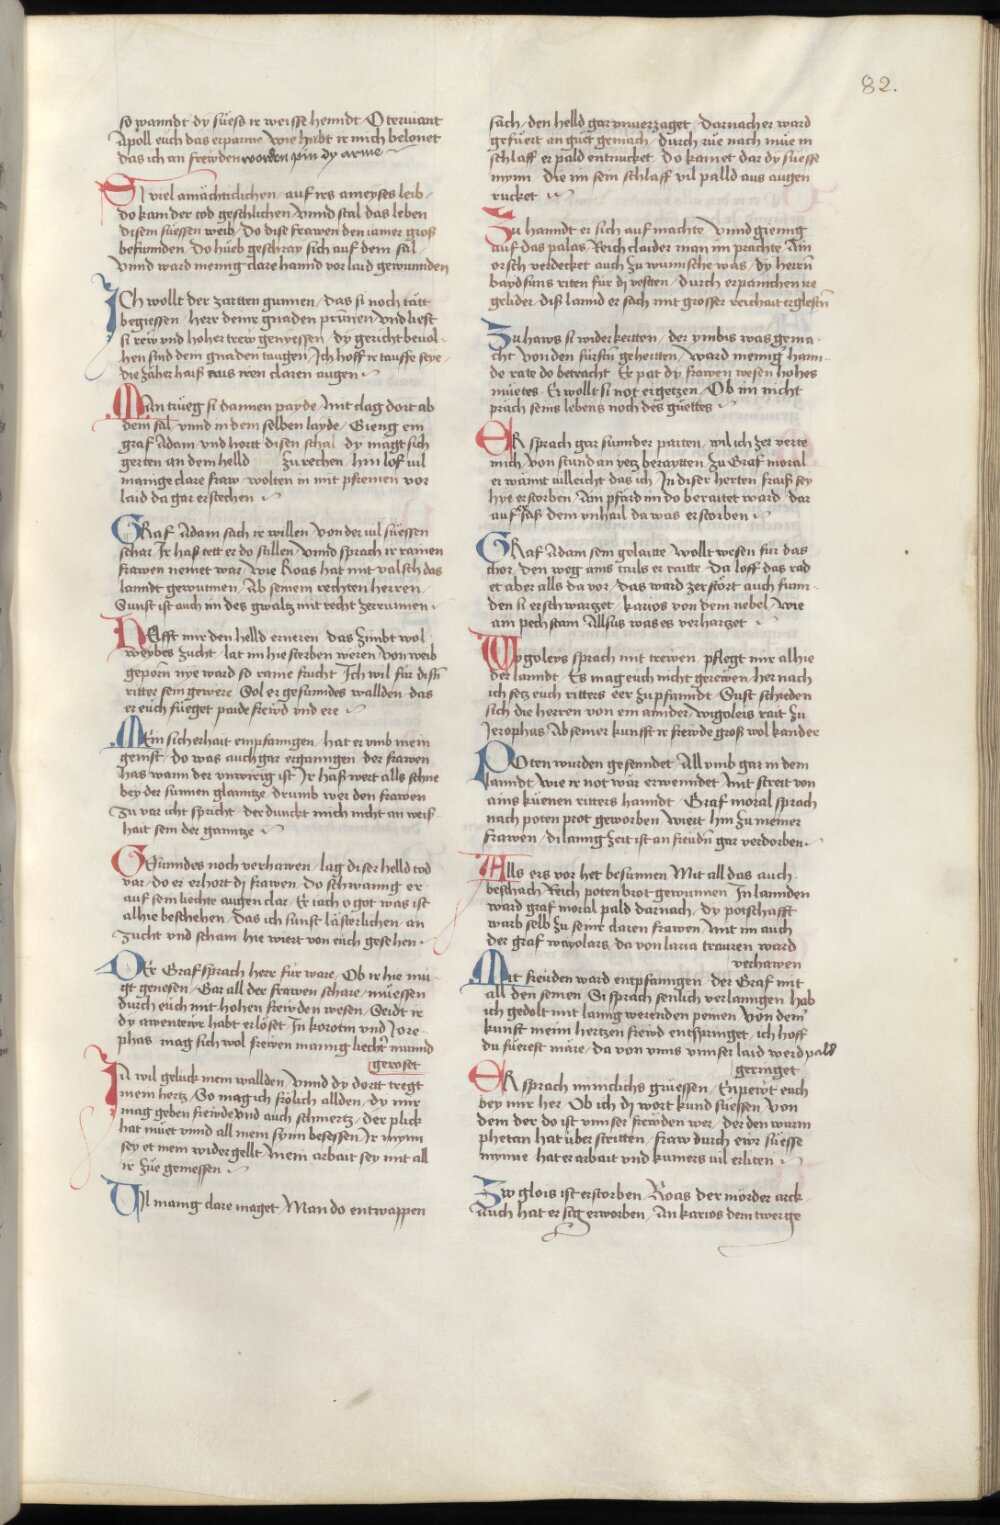 82.
so wanndt dy süess ir weisse henndt / O terviant
Apoll euch das erparme / Wie habt ir mich belonet
das ich an frewden worden pin dy arme
SI viel amächticlichen / auf irs ameyses leib /
do kam der tod geschlichen / Vnnd stal das leben
disem süessen weib / Do dise frawen den iamer gros
befunnden / Do hueb geschray sich auf dem sal /
Vnnd ward menig clare hannd vor laid gewunnden
ICh wollt der zartten gunnen / das si noch tätt
begiessen / herr deinr gnaden prunen / Vnd liest
si rew vnd hoher trew geniessen / dy gericht beuol-
hen sind dem gnaden taugen / Ich hoff ir tauffe seye /
die zäher haiß aus iren claren augen /
MAn trueg si dannen payde / mit clag dort ab
dem sal / vnnd in dem selben layde / Gieng ein
graf Adam vnd hortt disen schal / dy magt sich
gerten an dem helld zu rechen / hin lof vil
manige clare fraw / wolten in mit pfriemen vor
laid da gar erstechen /
GRaf Adam sach ir willen / von der vil süessen
schar / Ir hass tett er do stillen / Vnnd sprach ir rainen
frawen nemet war / wie Roas hat mit valsch das
lanndt gewunnen / Ab seinem rechten herren /
Sunst ist auch im des gwaltz mit recht zerrunnen /
HElfft mir den helld erneren / das zimbt wol
weybes zucht / lat im hie sterben weren / von weib
geporn nye ward so raine frucht / Ich wil für disn
ritter sein gewere / Sol er gesunndes wallden / das
er euch füeget paide frewd vnd ere /
MEin sicherhait empfanngen / hat er vmb mein
geinst / do was auch gar erganngen / der frawen
has wann der vnwirig ist / Ir haß wert alls schne
bey der sunnen glanntze / drumb wer den frawen
zu var icht spricht / der dunckt mich nicht an weis-
hait sein der ganntze /
GEsunndes noch verhawen / lag diser helld tod
var / do er erhort dj frawen / Do schwanng er
auf sein liechte augen clar / Er iach o got was ist
alhie beschehen / Das ich sunst lästerlichen / an
zucht vnd scham hie wiert von euch gesehen /
DEr Graf sprach herr für ware / Ob ir hie mü-
gt genesen / Gar all der frawen schare / müessen
durch euch mit hohen frewden wesen / Seidt ir
dy awentewr habt erlöset / In korotin vnd Jore-
phas / mag sich wol frewen manng liecht munnd
geroset
JA wil gelück mein wallden / Vnnd dy dortt tregt
mein hertz / So mag ich frölich allden / dy mir
mag geben frewde vnd auch schmertz / der plick
hat müet vnnd all mein synn besessen / Ir mynn
sey et mein widergellt / Mein arbait sey mit all
ir zue gemessen /
VIl manig clare maget / Man do entwappen
sach / den helld gar vnuerzaget / Darnach er ward
gefüert an guet gemach / durch rüe nach müe in
schlaff er pald entnucket / do kamet dar dy süesse
mynn / die im sein schlaff vil palld aus augen
rucket /
Zu hanndt er sich auf machte / Vnnd gienng
auf das palas / Reich claider man im prachte / Ain
orsch verdecket auch zu wunnsche was / dy herrn
baydsuns riten für dj vesten / durch erpanichen ire
gelider / disß lannd er sach mit grosser reichait erglesten
Zu haws si wider kerten / der ymbis was gema-
cht / von den fürsten geherten / Ward menig hann-
de rate do betracht / Er pat dy frawen wesen hohes
müetes / Er wollt si not ergetzen / Ob im nicht
präch seins lebens noch des güettes /
ER sprach gar sunnder parten / wil ich zer verte
mich / von stund an yetz beraytten / zu Graf moral
er wännt villeicht das ich / In diser herten fraiß sey
hye erstorben / Ain pfärd im do beraitet ward / dar
auf saß dem vnhail da was erstorben /
GRaf Adam sein gelaitte / Wollt wesen für das
thor / den weg ains tails er raitte / Da loff das rad
et aber alls da vor / das ward zerstört auch funn-
den si erschwartzet / karios von dem nebel / Wie
am pech stam / Allsus was es verhartzet /
WYgoleys sprach mit trewen / pflegt mir alhie
der lanndt / Es mag euch nicht gerewen / her nach
ich setz euch ritters eer zu pfanndt / Sust schieden
sich die herren von ein annder / wigoleis rait zu
Jerophas / Ab seiner kunfft ir frewde groß wol kander
POten wurden gesenndet / All vmb gar in dem
lanndt / Wie ir not wär erwenndet / Mit streit von
ains küenen ritters hanndt / Graf moral sprach
nach poten prot geworben / wiert hin zu meiner
frawen / di lanng zeit ist an freudn gar verdorben /
ALls ers vor het besunnen / Mit all das auch
beschach / Reich poten brot gewunnen / In lannden
ward graf moral pald darnach / dy potschafft
warb selb zu seinr claren frawen / Mit im auch
der graf wayolars / da von laria trauren ward
verhawen
MIt freuden ward entpfanngen / der Graf mit
all den seinen / Si sprach senlich verlanngen / hab
ich gedolt mit lanng werenden peinen / Von dem
kunst meim hertzen frewd entspringet / ich hoff
du füerest märe / da von vnns vnnser laid werd pald
geringet
ER sprach minniclichs grüessen / Enpewt euch
bey mir her / Ob ich dj wort kund süessen / von
dem der do ist vnnser frewden wer / der den wurm
phetan hat über stritten / fraw durch ewr süesse
mynne / hat er arbait vnd kumers vil erliten /
Zwglois ist erstorben / Roas der mörder arck /
Auch hat er sig erworben / An karios dem twerge